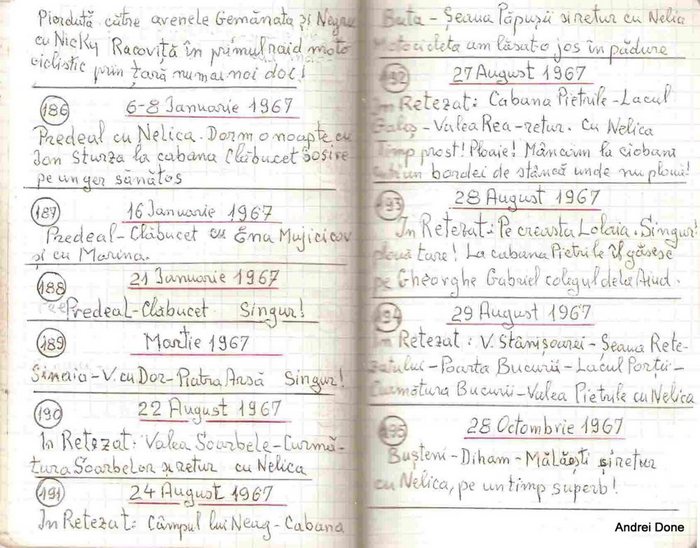 Pierdută către avenele Gemănata și Negru
cu Nicky Racoviță în primul raid moto
ciclistic prin țară numai noi doi!
186 6-8 Ianuarie 1967
Predeal cu Nelica. Dorm o noapte cu
Ion Sturza la cabana Clăbucet Sosire
pe un ger sănătos
187 16 Ianuarie 1967
Predeal-Clăbucet cu Ena Mujicicov
și cu Marina.
188 21 Ianuarie 1967
Predeal-Clăbucet Singur!
189 Martie 1967
Sinaia-V. cu Dor-Piatra Arsă Singur!
190 22 August 1967
In Retezat: Valea Soarbele-Curmă-
tura Soarbelor și retur cu Nelica
191 24 August 1967
In Retezat: Câmpul lui Neag-Cabana
Buta-Șeaua Păpușii si retur cu Nelia
Motocicleta am lăsat-o jos în pădure
192 27 August 1967
In Retezat: Cabana Pietrile-Lacul
Galeș-Valea Rea-retur. Cu Nelica
Timp prost! Ploaie! Mâncăm la ciobani
într'un bordei de stâncă unde nu plouă!
193 28 August 1967
In Retezat: Pe creasta Lolaia. Singur!
plouă tare! La cabana Pietrile îl găsesc
pe Gheorghe Gabriel colegul dela Aiud.
194 29 August 1967
In Retezat: V. Stânișoarei-Șeaua Rete-
zatului-Poarta Bucurii-Lacul Porții-
Curmătura Bucurii-Valea Pietrile cu Nelica
195 28 Octombrie 1967
Bușteni-Diham-Mălăești și retur
cu Nelica, pe un timp superb!
Andrei Done